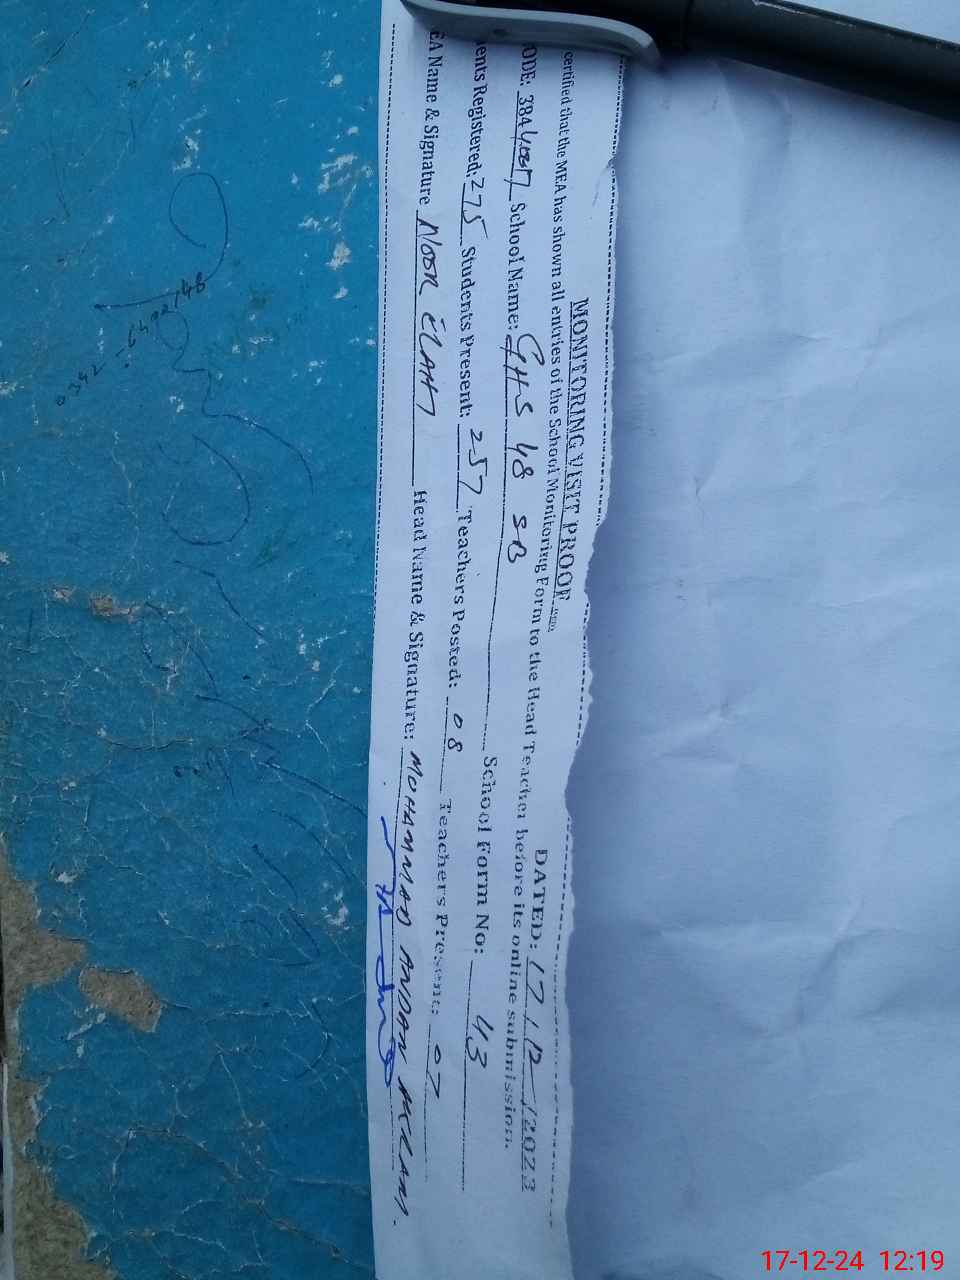 MONITORING VISIT PROOF
DATED: 17/12/2023
certified that the MEA has shown all entries of the School Monitoring Form to the Head Teacher before its online submission.
ODE: School Name: GHS 48 SB School Form No: 43
ents Registered: 275 Students Present: 257 Teachers Posted: 08 Teachers Present: 07
EA Name & Signature NOOR ELAHI Head Name & Signature: MUHAMMAD ADNAN
17-12-24 12:19